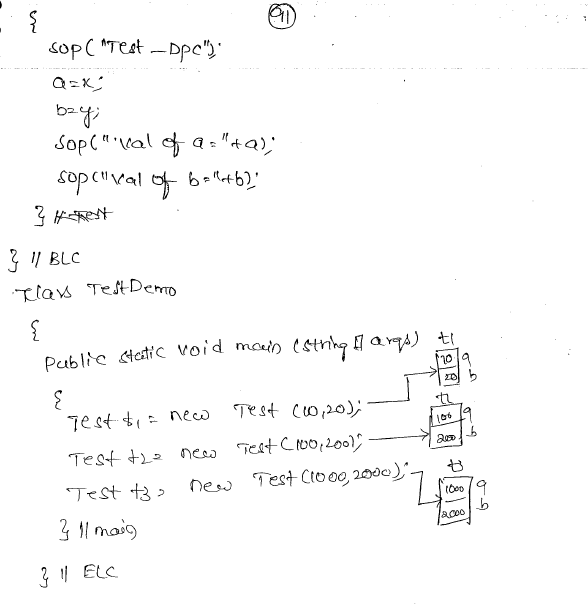 91
{
sop("Test - DPC");
a=x;
b=y;
sop("val of a="+a);
sop("val of b="+b);
} // Test
} // BLC
class TestDemo
{
Public static void main (string [] args)
{
Test t1 = new Test (10,20);
Test t2= new Test (100,200);
Test t3= new Test (1000,2000);
} // main
} // ELC
t1
10 a
20 b
t2
100 a
200 b
t3
1000 a
2000 b